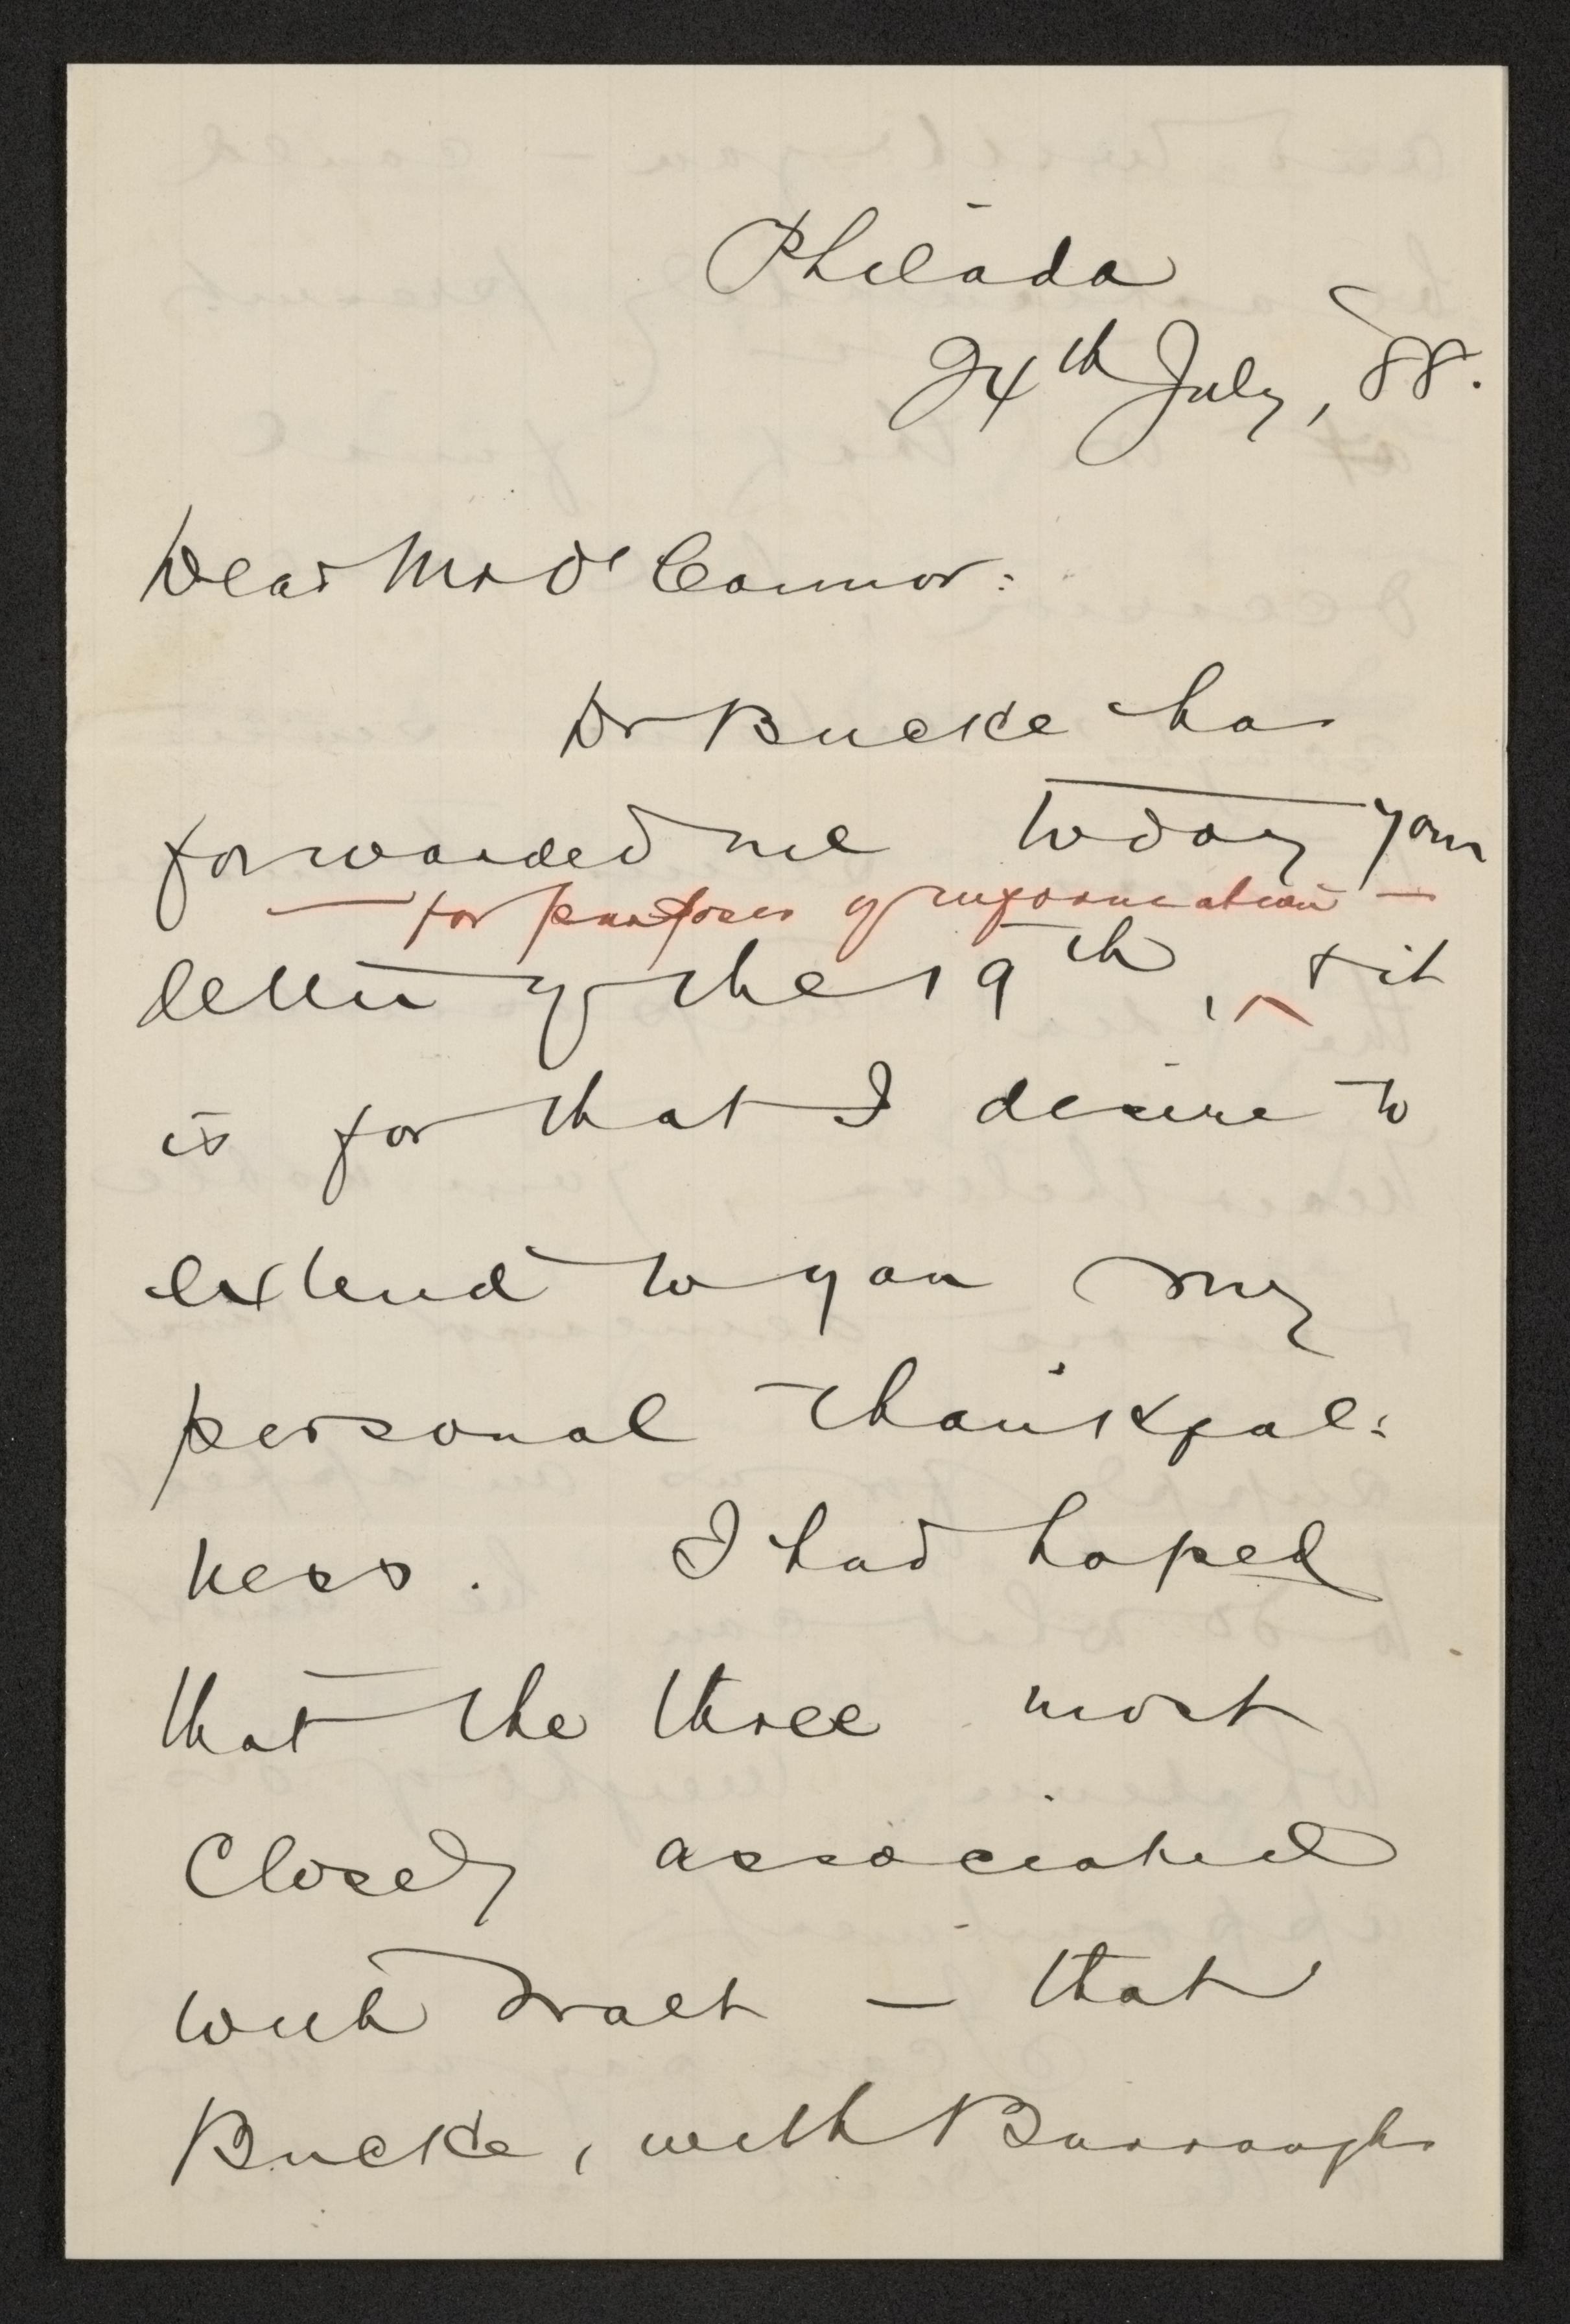 Philada
24th July, '88.
Dear Mr O'Connor:
Dr Bucke has
forwarded me today your
— for purposes of information —
letter of the 19th, ^ & it
is for that I desire to
extend to you my
personal thankful:
ness. I had hoped
that the three most
closely associated
with Walt — that
Bucke, with Burroughs